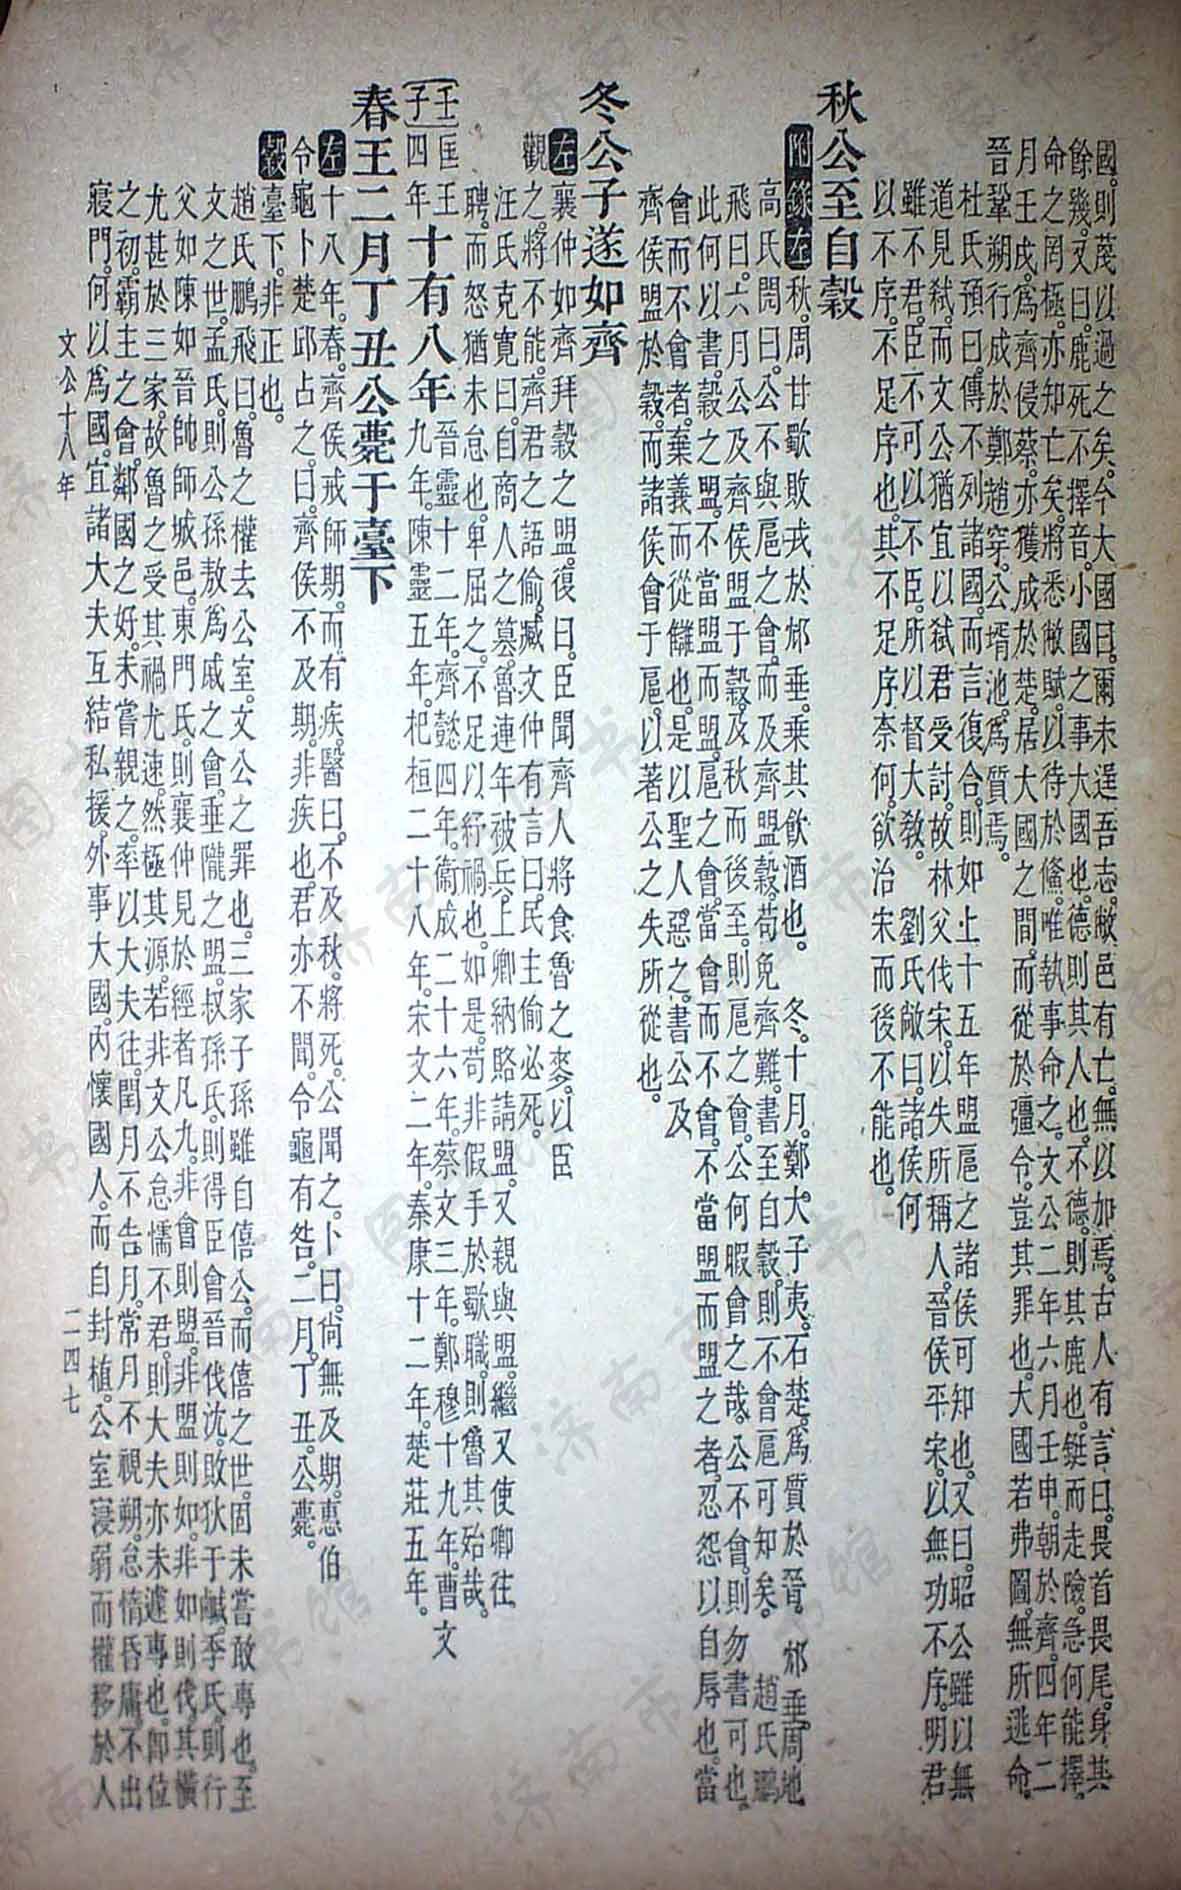 國。則蔑以過之矣。今大國曰。爾未逞吾志。敝邑有亡。無以加焉。古人有言曰。畏首畏尾。身其
餘幾。又曰。鹿死不擇音。小國之事大國也。德則其人也。不德。則其鹿也。鋌而走險。急何能擇。
命之罔極。亦知亡矣。將悉敝賦。以待於鯈。唯執事命之。文公二年六月壬申。朝於齊。四年二
月壬戌。爲齊侵蔡。亦獲成於楚。居大國之間。而從於彊令。豈其罪也。大國若弗圖。無所逃命。
晉鞏朔行成於鄭。趙穿。公壻池。爲質焉。
杜氏預曰。傳不列諸國。而言復合。則如上十五年盟扈之諸侯可知也。又曰。昭公雖以無
道見弒。而文公猶宜以弒君受討。故林父伐宋。以失所稱人。晉侯平宋。以無功不序。明君
雖不君。臣不可以不臣。所以督大教。 劉氏敞曰。諸侯何
以不序。不足序也。其不足序奈何。欲治宋而後不能也。
秋公至自穀
附錄左秋。周甘歜敗戎於邥垂。乘其飲酒也。 冬。十月。鄭大子夷。石楚。爲質於晉。 邥垂。周地。
高氏閌曰。公不與扈之會。而及齊盟穀。苟免齊難。書至自穀。則不會扈可知矣。 趙氏鵬
飛曰。六月公及齊侯盟于穀。及秋而後至。則扈之會。公何暇會之哉。公不會。則勿書可也。
此何以書。穀之盟。不當盟而盟。扈之會。當會而不會。不當盟而盟之者。忍怨以自辱也。當
會而不會者。棄義而從讎也。是以聖人惡之。書公及
齊侯盟於穀。而諸侯會于扈。以著公之失所從也。
冬公子遂如齊
左襄仲如齊。拜穀之盟。復曰。臣聞齊人將食魯之麥。以臣
觀之。將不能。齊君之語偷。臧文仲有言曰。民主偷必死。
汪氏克寬曰。自商人之篡。魯連年被兵。上卿納賂請盟。又親與盟。繼又使卿往
聘。而怒猶未怠也。卑屈之。不足以紓禍也。如是。苟非假手於歜職。則魯其殆哉。
(壬子)匡王四年十有八年晉靈十二年。齊懿四年。衞成二十六年。蔡文三年。鄭穆十九年。曹文九年。陳靈五年。杞桓二十八年。宋文二年。秦康十二年。楚莊五年。
春王二月丁丑公薨于臺下
左十八年。春。齊侯戒師期。而有疾。醫曰。不及秋。將死。公聞之。卜曰。尚無及期。惠伯
令龜。卜楚邱占之。曰。齊侯不及期。非疾也。君亦不聞。令龜有咎。二月。丁丑。公薨。
穀臺下。非正也。
趙氏鵬飛曰。魯之權去公室。文公之罪也。三家子孫雖自僖公。而僖之世。固未嘗敢專也。至
文之世。孟氏。則公孫敖爲戚之會。垂隴之盟。叔孫氏。則得臣會晉伐沈。敗狄于鹹。季氏則行
父如陳如晉帥師城邑。東門氏。則襄仲見於經者凡九。非會則盟。非盟則如。非如則伐。其橫
尤甚於三家。故魯之受其禍尤速。然極其源。若非文公怠懦不君。則大夫亦未遽專也。卽位
之初。霸主之會。鄰國之好。未嘗親之。率以大夫往。閏月不告月。常月不視朔。怠惰昏庸。不出
寢門。何以爲國。宜諸大夫互結私援。外事大國。內懷國人。而自封植。公室寖弱而權移於人
文公十八年
二四七